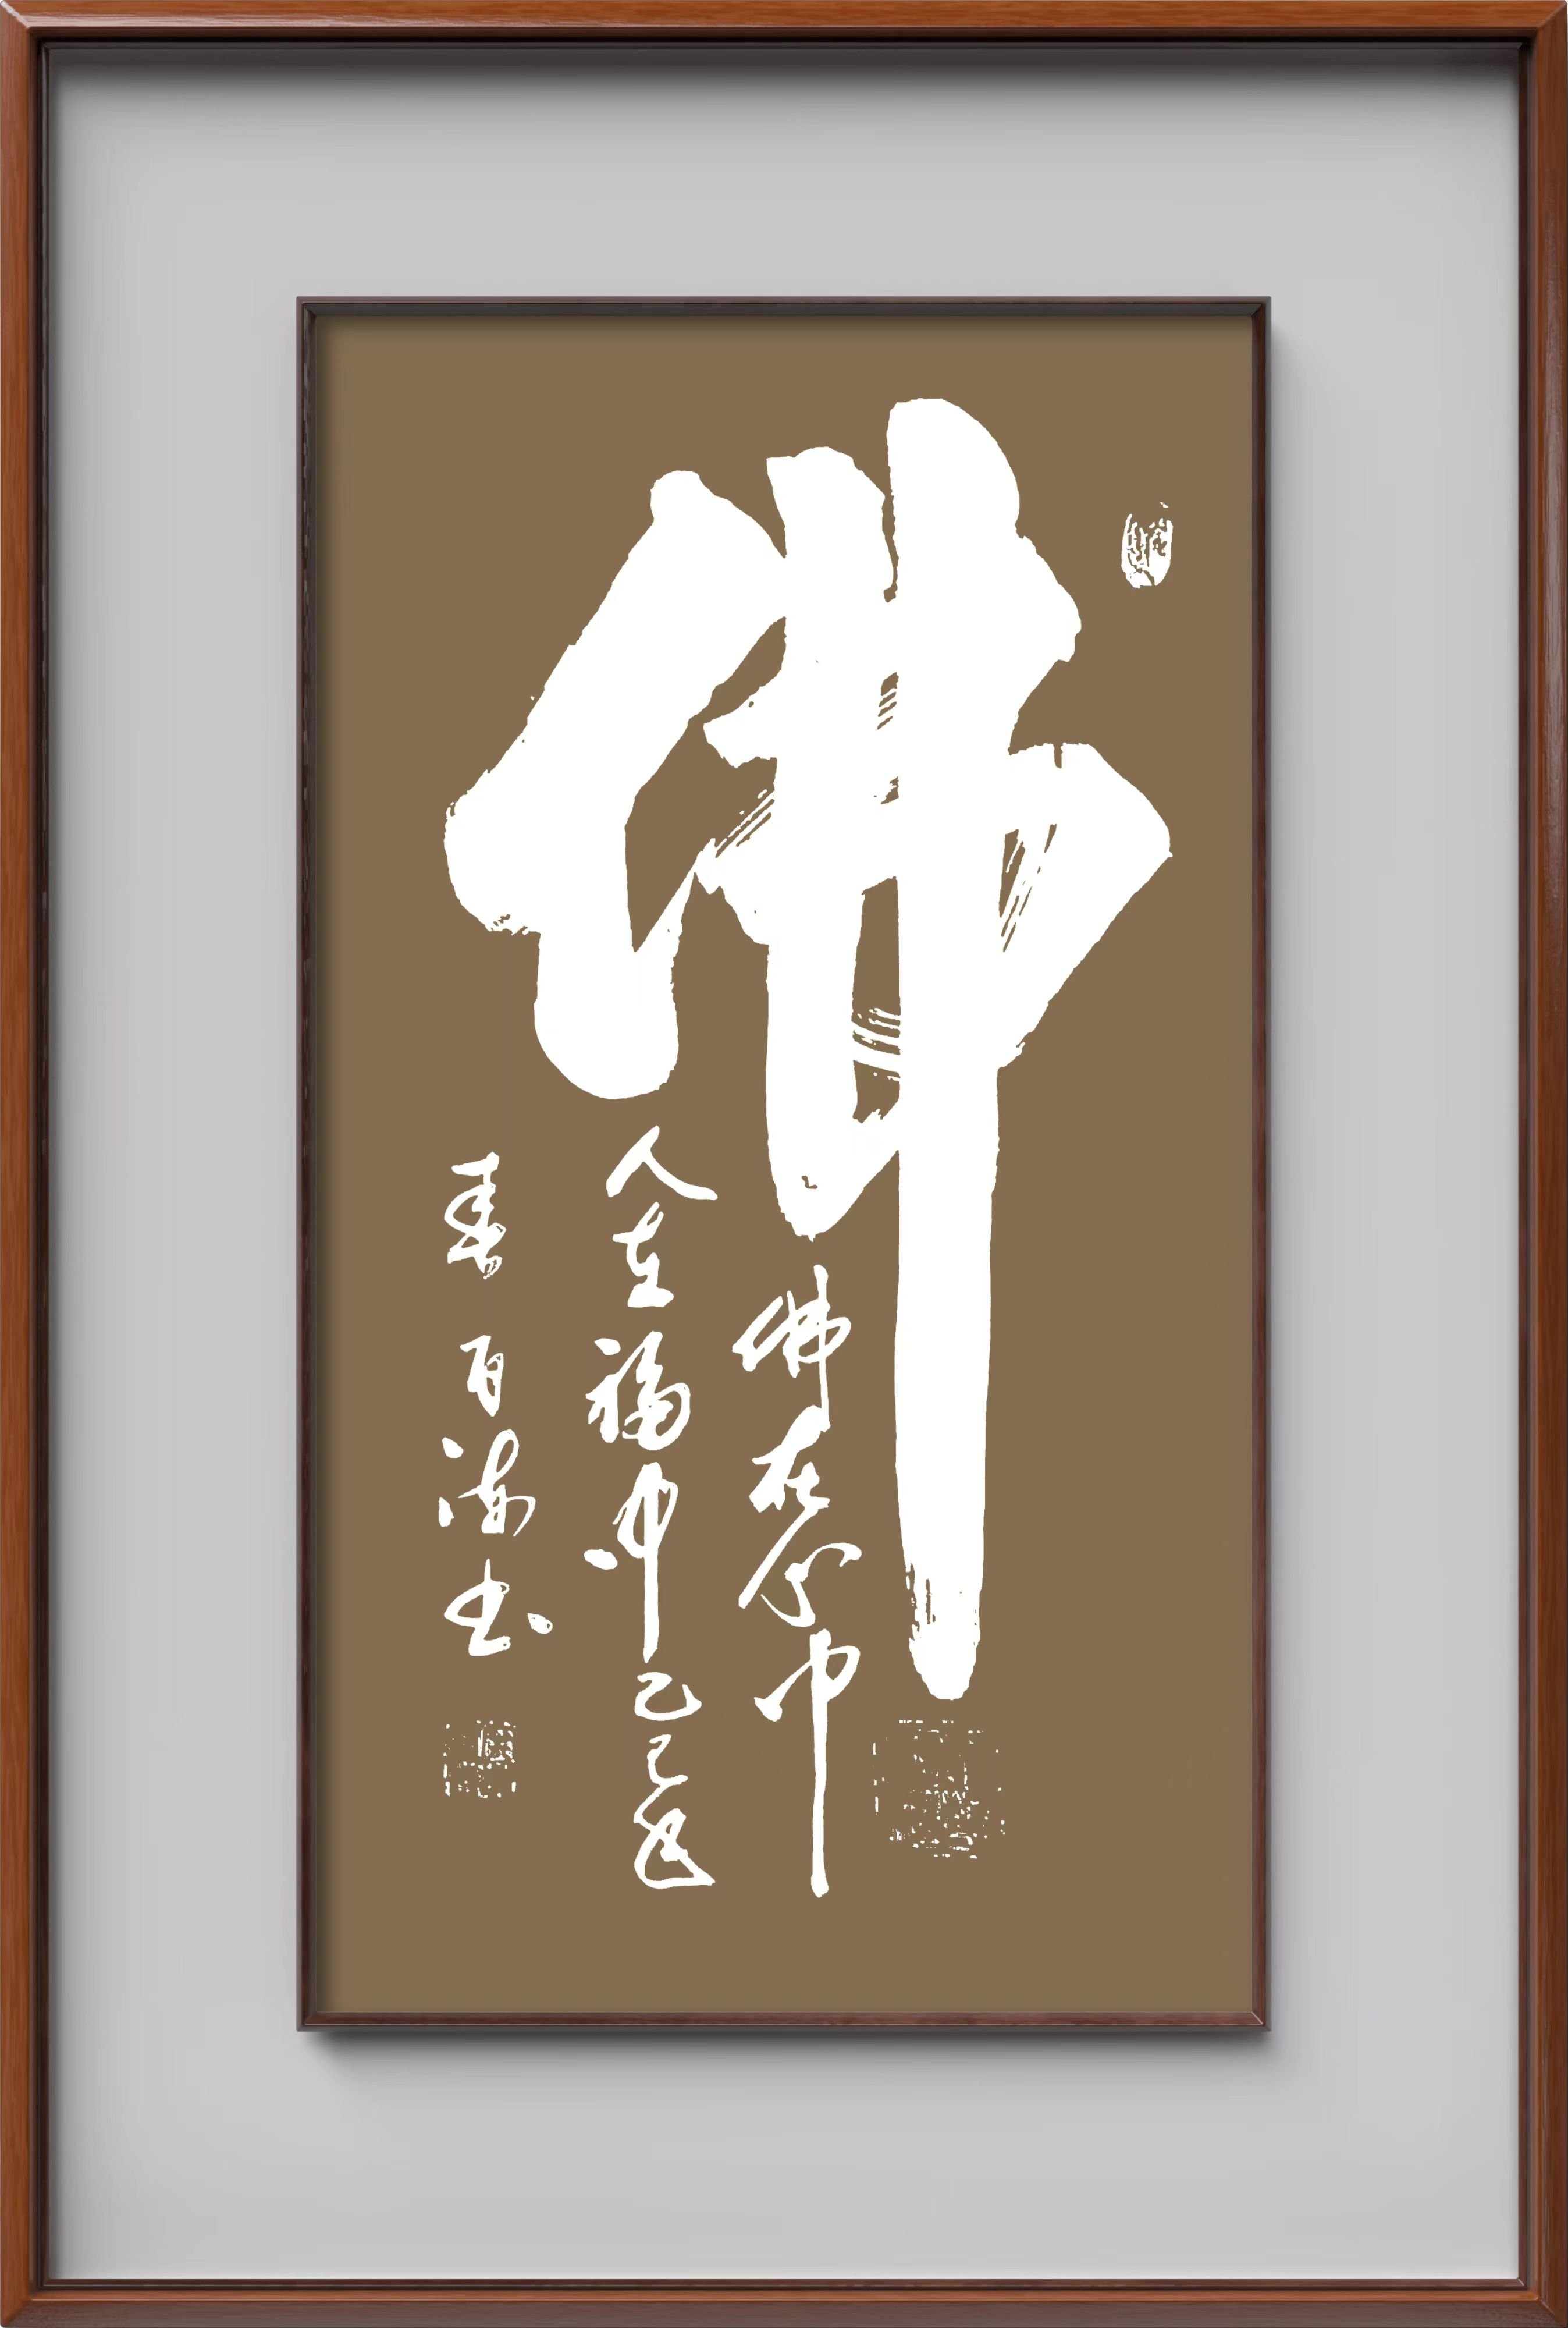 佛
佛在心中
人在福中乙巳年
春百海书